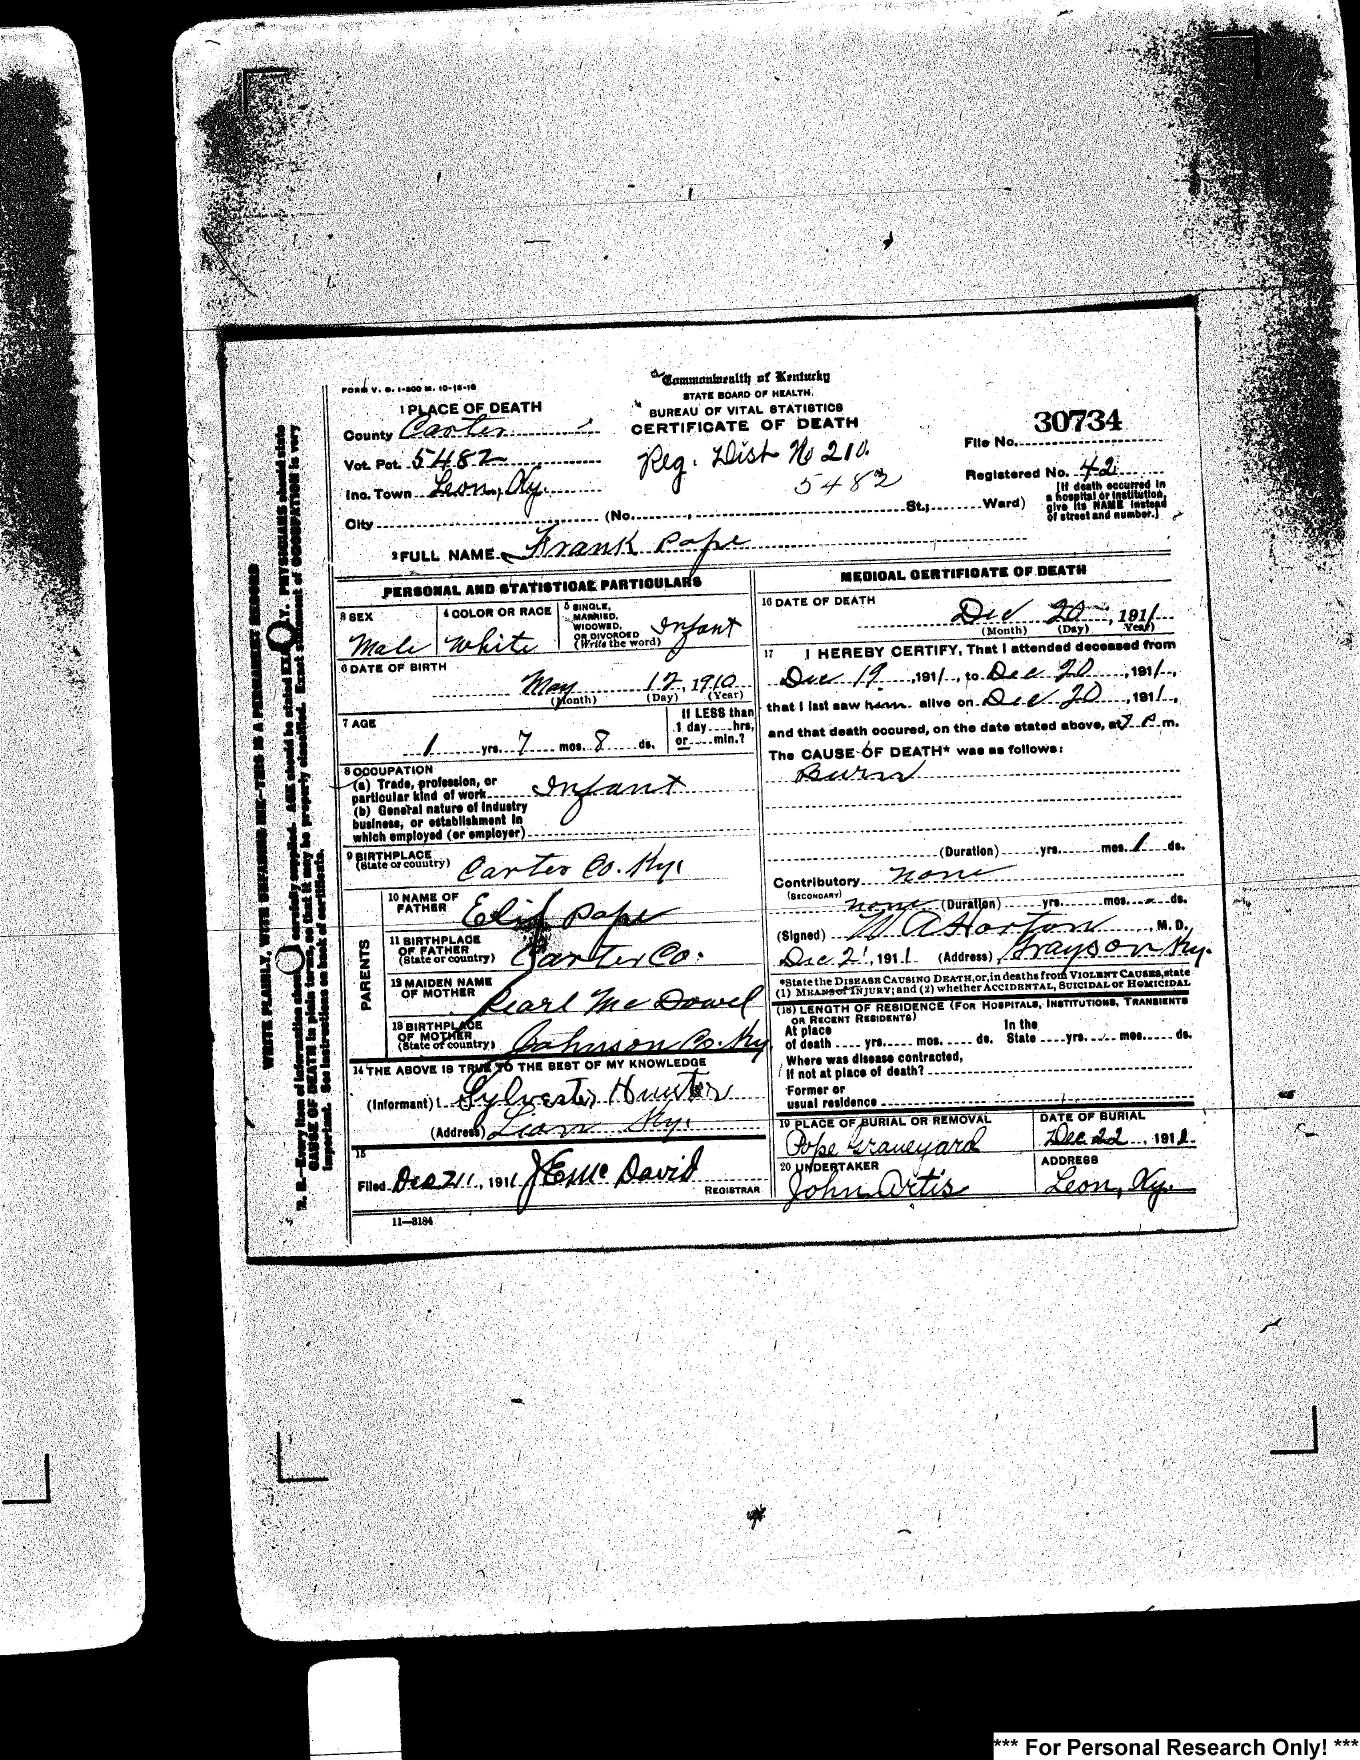 FORM V. S. 1-500 M. 10-15-10
Commonwealth of Kentucky
STATE BOARD OF HEALTH.
BUREAU OF VITAL STATISTICS
CERTIFICATE OF DEATH
1 PLACE OF DEATH
County Carter
Vot. Pct. 5482
Inc. Town Leon, Ky.
City (No. , St.; Ward)
Reg. Dist No 210.
5482
File No. 30734
Registered No. 42
[If death occurred in
a hospital or institution,
give its NAME instead
of street and number.]
2 FULL NAME Frank Pope
PERSONAL AND STATISTICAL PARTICULARS
3 SEX
Male
4 COLOR OR RACE
White
5 SINGLE,
MARRIED,
WIDOWED,
OR DIVORCED
(Write the word) Infant
6 DATE OF BIRTH
May 12, 1910
(Month) (Day) (Year)
7 AGE
1 yrs. 7 mos. 8 ds.
If LESS than
1 day hrs,
or min.?
8 OCCUPATION
(a) Trade, profession, or
particular kind of work Infant
(b) General nature of industry
business, or establishment in
which employed (or employer)
9 BIRTHPLACE
(State or country) Carter Co. Ky.
PARENTS
10 NAME OF
FATHER Pope
11 BIRTHPLACE
OF FATHER
(State or country) Carter Co.
12 MAIDEN NAME
OF MOTHER Pearl McDowel
13 BIRTHPLACE
OF MOTHER
(State or country) Johnson Co. Ky
14 THE ABOVE IS TRUE TO THE BEST OF MY KNOWLEDGE
(Informant) Sylvester Hunter
(Address) Leon Ky.
15
Filed Dec 21, 1911 J E McDavid
REGISTRAR
11—3184
MEDICAL CERTIFICATE OF DEATH
16 DATE OF DEATH
Dec 20, 1911
(Month) (Day) Year)
17 I HEREBY CERTIFY, That I attended deceased from
Dec 19, 191/, to Dec 20, 191/,
that I last saw him alive on Dec 20, 191/,
and that death occured, on the date stated above, at 9 P m.
The CAUSE OF DEATH* was as follows:
Burn
(Duration) yrs. mos. 1 ds.
Contributory none
(SECONDARY)
none (Duration) yrs. mos. ds.
(Signed) W A Horton, M. D.
Dec 21, 1911 (Address) Grayson Ky.
*State the DISEASE CAUSING DEATH, or, in deaths from VIOLENT CAUSES, state
(1) MEANS OF INJURY; and (2) whether ACCIDENTAL, SUICIDAL or HOMICIDAL
(18) LENGTH OF RESIDENCE (FOR HOSPITALS, INSTITUTIONS, TRANSIENTS
OR RECENT RESIDENTS)
At place
of death yrs. mos. ds.
In the
State yrs. mos. ds.
Where was disease contracted,
If not at place of death?
Former or
usual residence
19 PLACE OF BURIAL OR REMOVAL
Pope Graveyard
DATE OF BURIAL
Dec 22, 1911
20 UNDERTAKER
John Artis
ADDRESS
Leon, Ky.
WRITE PLAINLY, WITH UNFADING INK—THIS IS A PERMANENT RECORD
N. B.—Every item of information should be carefully supplied. AGE should be stated EXACTLY. PHYSICIANS should state
CAUSE OF DEATH in plain terms, so that it may be properly classified. Exact statement of OCCUPATION is very
important. See instructions on back of certificate.
*** For Personal Research Only! ***